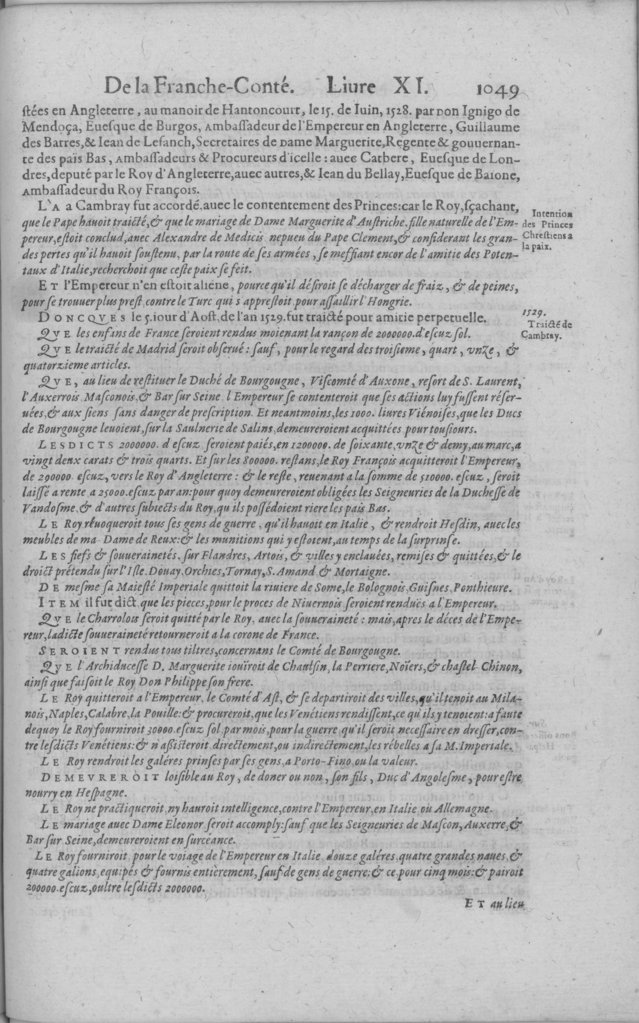 De la Franche-Conté. Liure XI. 1049
stées en Angleterre, au manoir de Hantoncourt, le 15. de Iuin, 1528. par don Ignigo de
Mendoça, Euesque de Burgos, Ambassadeur de l'Empereur en Angleterre, Guillaume
des Barres, & Iean de Lesanch, Secretaires de Dame Marguerite, Regente & gouuernan-
te des païs Bas, Ambassadeurs & Procureurs d'icelle: auec Catbere, Euesque de Lon-
dres, deputé par le Roy d'Angleterre, auec autres, & Iean du Bellay, Euesque de Baione,
Ambassadeur du Roy François.
L'A a Cambray fut accordé. auec le contentement des Princes: car le Roy, sçachant,
que le Pape hauoit traicté, & que le mariage de Dame Marguerite d'Austriche, fille naturelle de l'Em-
pereur, estoit conclud, auec Alexandre de Medicis nepueu du Pape Clement, & considerant les gran-
des pertes qu'il hauoit soustenu, par la route de ses armées, se messiant encor de l'amitie des Poten-
taux d'Italie, recherchoit que ceste paix se feit.
Intention
des Princes
Chrestiens a
la paix.
ET l'Empereur n'en estoit aliene, pource qu'il désiroit se décharger de fraiz, & de peines,
pour se trouuer plus prest, contre le Turc qui s'apprestoit, pour assaillir l'Hongrie.
DONCQVES le 5. iour d'Aost, de l'an 1529. fut traicté pour amitie perpetuelle.
1529.
Traicté de
Cambray.
QVE les enfans de France seroient rendus moienant la rançon de 2000000. d'escuz sol.
QVE le traicté de Madrid seroit obserué: sauf, pour le regard des troisiome, quart, vnze, &
quatorzieme articles.
QVE, au lieu de restituer le Duché de Bourgougne, Viscomté d'Auxone, resort de S. Laurent,
l'Auxerrois, Masconois, & Bar sur Seine, l'Empereur se contenteroit que ses actions luy fussent réser-
uées, & aux siens sans danger de prescription. Et neantmoins, les 1000. liures Viénoises, que les Ducs
de Bourgougne leuoient, sur la Saulnerie de Salins, demeureroient acquittées pour tousiours.
LESDICTS 2000000. d'escuz seroient paiés, en 1200000. de soixante, vnze & demy, au marc, a
vingt deux carats & trois quarts. Et sur les 800000. restans, le Roy François acquitteroit l'Empereur,
de 290000. escuz, vers le Roy d'Angleterre: & le reste, reuenant a la somme de 510000. escuz, seroit
laissé a rente a 25000. escuz par an: pour quoy demeureroient obligées les Seigneuries de la Duchesse de
Vandosme, & d'autres subiects du Roy, qu'ils possédoient riere les païs Bas.
LE Roy réuoqueroit tous ses gens de guerre, qu'il hauoit en Italie, & rendroit Hesdin, auec les
meubles de ma Dame de Reux: & les munitions qui y estoient, au temps de la surprinse.
LES fiefs & souuerainetés, sur Flandres, Artois, & villes y enclauées, remises & quittées, & le
droict prétendu sur l'Isle, Douay, Orchies, Tornay, S. Amand & Mortaigne.
DE mesme sa Maiesté Imperiale quittoit la riuiere de Some, le Bolognois, Guisnes, Ponthieure.
ITEM il fut dict que les pieces, pour le proces de Niuernois seroient rendues a l'Empereur.
QVE le Charrolois seroit quitté par le Roy, auec la souueraineté: mais, apres le déces de l'Empe-
reur, ladicte souueraineté retourneroit a la corone de France.
SEROIENT rendus tous tiltres, concernans le Comté de Bourgougne.
QVE l'Archiducesse D. Marguerite iouïroit de Chaulsin, la Perriere, Noïers, & chastel-Chinon,
ainsi que faisoit le Roy Don Philippe son frere.
LE Roy quitteroit a l'Empereur, le Comté d'Ast, & se departiroit des villes, qu'il tenoit au Mila-
nois, Naples, Calabre, la Pouille: & procureroit, que les Venétiens rendissent, ce qu'ils y tenoient: a faute
dequoy le Roy fourniroit 30000. escuz sol. par mois, pour la guerre, qu'il seroit necessaire en dresser, con-
tre lesdicts Venétiens: & n'assisteroit, directement, ou indirectement, les rébelles a sa M. Imperiale.
LE Roy rendroit les galéres prinses par ses gens, a Porto-Fino, ou la valeur.
DEMEVREROIT loisible au Roy, de doner ou non, son fils, Duc d'Angolesme, pour estre
nourry en Hespagne.
LE Roy ne practiqueroit, ny hauroit intelligence, contre l'Empereur, en Italie ou Allemagne.
LE mariage auec Dame Eleonor seroit accomply: sauf que les Seigneuries de Mascon, Auxerre, &
Bar sur Seine, demeureroient en surceance.
LE Roy fourniroit, pour le voiage de l'Empereur en Italie, douze galéres, quatre grandes naues, &
quatre galions, equipés & fournis entièrement, sauf de gens de guerre: & ce, pour cinq mois: & pairoit
200000. escuz, oultre lesdicts 2000000.
ET au lieu